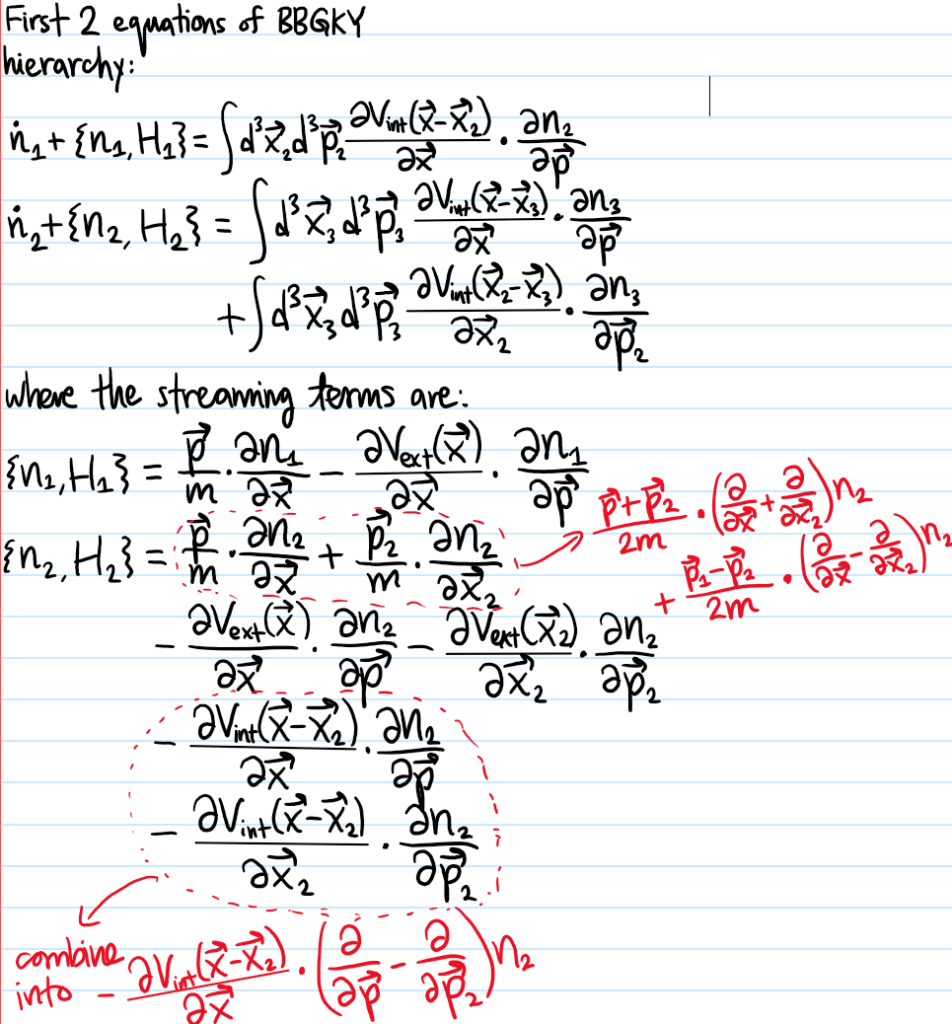 First 2 equations of BBGKY
hierarchy:
ṅ₁ + {n₁, H₁} = ∫d³x⃗₂d³p⃗₂ ∂V_int(x⃗-x⃗₂)/∂x⃗ · ∂n₂/∂p⃗
ṅ₂ + {n₂, H₂} = ∫d³x⃗₃d³p⃗₃ ∂V_int(x⃗-x⃗₃)/∂x⃗ · ∂n₃/∂p⃗
+ ∫d³x⃗₃d³p⃗₃ ∂V_int(x⃗₂-x⃗₃)/∂x⃗₂ · ∂n₃/∂p⃗₂
where the streaming terms are:
{n₁, H₁} = p⃗/m · ∂n₁/∂x⃗ - ∂V_ext(x⃗)/∂x⃗ · ∂n₁/∂p⃗
{n₂, H₂} = p⃗/m · ∂n₂/∂x⃗ + p⃗₂/m · ∂n₂/∂x⃗₂
(p⃗+p⃗₂)/2m · (∂/∂x⃗ + ∂/∂x⃗₂)n₂
+ (p⃗₁-p⃗₂)/2m · (∂/∂x⃗ - ∂/∂x⃗₂)n₂
- ∂V_ext(x⃗)/∂x⃗ · ∂n₂/∂p⃗ - ∂V_ext(x⃗₂)/∂x⃗₂ · ∂n₂/∂p⃗₂
- ∂V_int(x⃗-x⃗₂)/∂x⃗ · ∂n₂/∂p⃗
- ∂V_int(x⃗-x⃗₂)/∂x⃗₂ · ∂n₂/∂p⃗₂
combine
into - ∂V_int(x⃗-x⃗₂)/∂x⃗ · (∂/∂p⃗ - ∂/∂p⃗₂)n₂